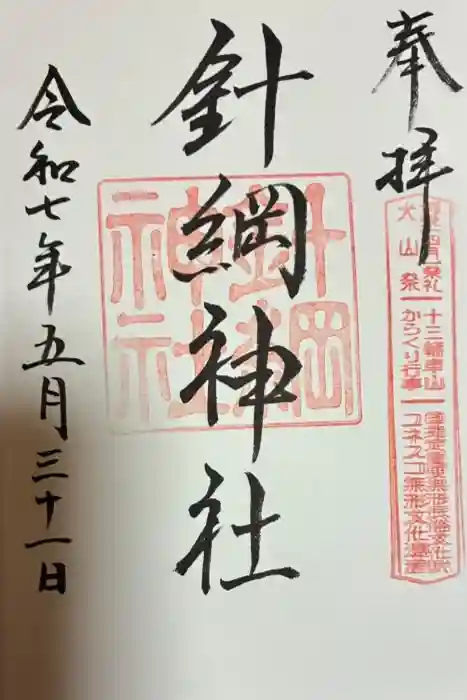 奉拝
大山祭
十三輌車山
からくり行事
国指定重要無形民俗文化財
ユネスコ無形文化遺産
針綱神社
針綱神社
令和七年五月三十一日